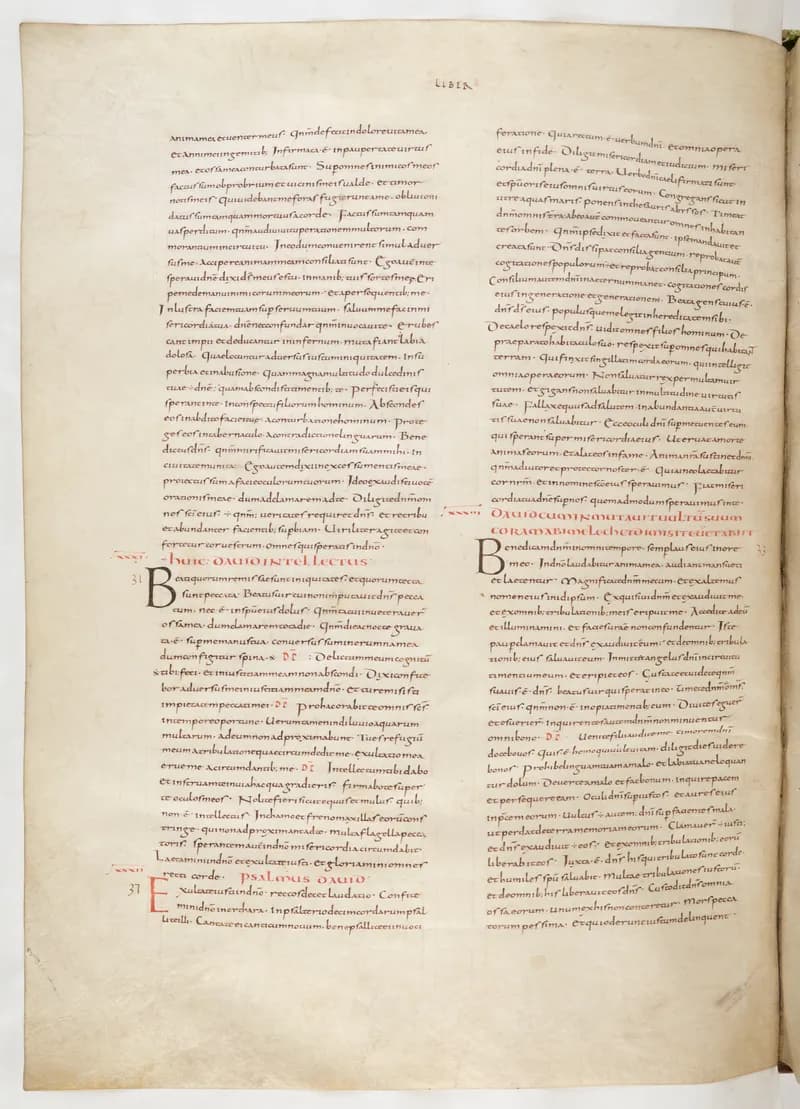 LIBER
anima mea et uenter meus. Qnm defecit in dolore uita mea.
et anni mei in gemitib; Infirmata ÷ in paupertate uirtus
mea. et ossa mea conturbata sunt. Sup omnes inimicos meos
factus sum obprobrium et uicinis meis ualde. et timor
notis meis. Qui uidebant me foras fugierunt a me. obliuioni
datus sum tamquam mortuus a corde. Factus sum tamquam
uas perditum. qnm audiui uituperationem multorum. com
morantium in circuitu. In eo dum conuenirent simul aduer
sus me. accipere animam meam consiliati sunt. Ego aut in te
speraui dne dixi ds meus es tu. in manib; tuis sortes meę. Eri
pe me de manu inimicorum meorum. et a persequentib; me.
Inlustra faciem tuam sup seruum tuum. saluum me fac in mi
sericordia tua. dne ne confundar qnm inuocaui te. Erubes
cant impii et deducantur in infernum. muta fiant labia
dolosa. Quae locuntur aduersus iustum iniquitatem. In su
perbia et in abusione. Quam magna multitudo dulcedinis
tuae dne. quam abscondisti timentib; te. Perfecisti eis qui
sperant in te. in conspectu filiorum hominum. Abscondes
eos in abdito faciei tuę. a conturbatione hominum. Prote
ges eos in tabernaculo. a contradictione linguarum. Bene
dictus dns. qnm mirificauit misericordiam suam mihi. in
ciuitate munita. Ego aut dixi in excessu mentis meae.
proiectus sum a facie oculorum tuorum. Ideo exaudisti uocē
orationis meae. dum adclamarem ad te. Diligite dnm om
nes sci eius. qnm ueritatem requiret dns. et retribu
et abundanter facientib; supbiam. Uiriliter agite et con
fortetur cor uestrum. omnes qui speratis in dno.
XXXI HUIC DAUID INTELLECTUS
31 Beati quorum remissae sunt iniquitates. et quorum tecta
sunt peccata. Beatus uir cui non imputauit dns pecca
tum. nec ÷ in spū eius dolus. Qnm tacui inueterauer
ossa mea. dum clamarem tota die. Qnm die ac nocte graua
ta ÷ sup me manus tua. conuersus sum in erumna mea
dum configitur spina. Delictum meum cognitū
tibi feci. et iniustitiam meam non abscondi. Dixi confite
bor aduersum me iniustitiam meam dno. et tu remisisti
impietatem peccati mei. Pro hac orabit ad te omnis scs.
in tempore oportuno. Uerumtamen in diluuio aquarum
multarum. ad eum non adproximabunt. Tu es refugiū
meum a tribulatione quae circumdedit me. exultatio mea
erue me a circumdantib; me. Intellectum tibi dabo
et instruam te in uia hac qua gradieris. firmabo te super
te oculos meos. Nolite fieri sicut equus et mulus. quib;
non ÷ intellectus. In chamo et freno maxillas eorū cons
tringe. qui non adproximant ad te. Multa flagella pecca
toris. sperantem aut in dno misericordia circumdabit.
Laetamini in dno et exultate iusti. et gloriamini omnes
recti corde. PSALMUS DAUID
XXXII
32 Exultate iusti in dno. rectos decet laudatio. Confite
mini dno in cithara. in psalterio decim cordarum psal
lite illi. Cantate ei canticum nouum. bene psallite in uoci
feratione. Quia rectum ÷ uerbum dni. et omnia opera
eius in fide. Diligit misericordiam et iudicium. miseri
cordia dni plena ÷ terra. Uerbo dni caeli firmati sunt.
et spū oris eius omnis uirtus eorum. Congregans sicut in
utre aquas maris. ponens in thesauris abyssos. Timeat
dnm omnis terra. ab eo aut commoueantur omnes inhabitan
tes orbem. Qnm ipse dixit et facta sunt. ipse mandauit et
creata sunt. Dns dissipat consilia gentium. reprobat aut
cogitationes populorum. et reprobat consilia principum.
Consilium autem dni in aeternum manet. cogitationes cordis
eius in generatione et generationem. Beata gens cuius ÷
dns ds eius. populus quem elegit in hereditatem sibi.
De caelo respexit dns. uidit omnes filios hominum. De
praeparato habitaculo suo. respexit sup omnes qui habitant
terram. Qui finxit singillatim corda eorum. qui intelligit
omnia opera eorum. Non saluatur rex per multam uir
tutem. et gigans non saluabitur in multitudine uirtutis
suae. Fallax equus ad salutem. in abundantia aut uirtu
tis suae non saluabitur. Ecce oculi dni sup metuentes eum.
qui sperant super misericordia eius. Ut eruat a morte
animas eorum. et alat eos in fame. Anima nra sustinet dnm.
qnm adiutor et protector noster ÷. Quia in eo laetabitur
cor nrm. et in nomine sco eius sperauimus. Fiat miseri
cordia tua dne sup nos. quemadmodum sperauimus in te.
XXXIII DAUID CUM INMUTAUIT UULTUM SUUM
CORAM ABIMELECH ET DIMISIT EUM ET ABIIT
33 Benedicam dnm in omni tempore. semp laus eius in ore
meo. In dno laudabitur anima mea. audiant mansueti
et laetentur. Magnificate dnm mecum. et exaltemus
nomen eius in id ipsum. Exquisiui dnm et exaudiuit me.
et ex omnib; tribulationib; meis eripuit me. Accedite ad eū
et illuminamini. et facies urae non confundentur. Iste
pauper clamauit et dns exaudiuit eum. et de omnib; tribula
tionib; eius saluauit eum. Inmittit angelus dni in circuitu
timentium eum. et eripiet eos. Gustate et uidete qnm
suauis ÷ dns. beatus uir qui sperat in eo. Timete dnm oms
sci eius. qnm non ÷ inopia timentib; eum. Diuites eguer
et esurier. inquirentes aut dnm non minuentur
omni bono. Uenite filii audite me. timorem dni
docebo uos. Quis ÷ homo qui uult uitam. diligit dies uidere
bonos. Prohibe linguam tuam a malo. et labia tua ne loquan
tur dolum. Deuerte a malo et fac bonum. inquire pacem
et persequere eam. Oculi dni sup iustos. et aures eius
in p̄cem eorum. Uultus autem dni sup facientes mala.
ut perdat de terra memoriam eorum. Clamauer iusti;
et dns exaudiuit eos. et ex omnib; tribulationib; eorū
liberabit eos. Iuxta ÷ dns his qui tribulato sunt corde.
et humiles spū saluabit. Multae tribulationes iustorū.
et de omnib; his liberauit eos dns. Custodit dns omnia
ossa eorum. unum ex his non conteretur. Mors pecca
torum pessima. et qui oderunt iustum delinquent.